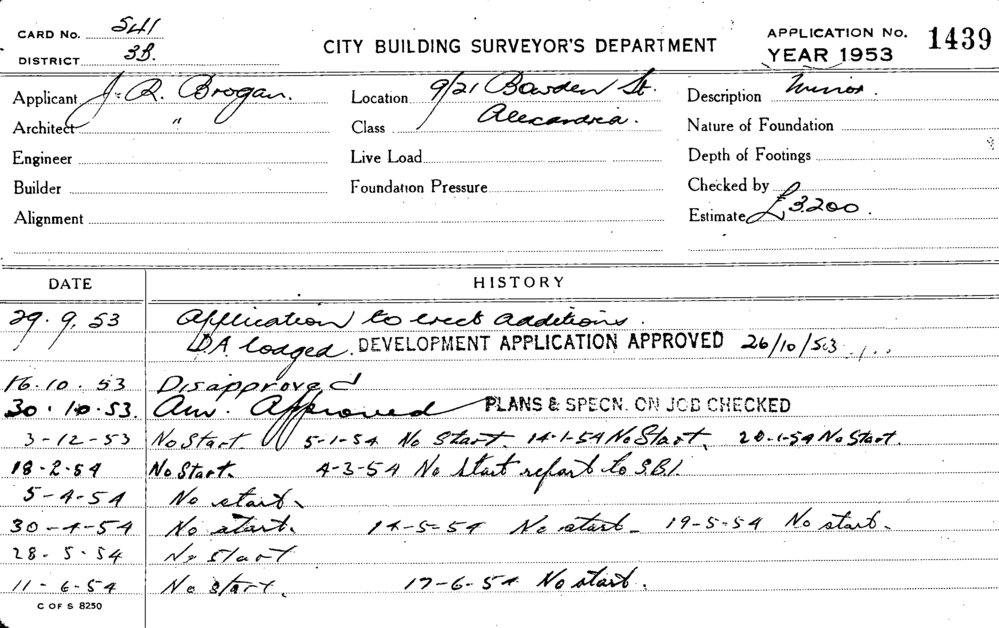 CARD No. 541
DISTRICT 3B.
CITY BUILDING SURVEYOR'S DEPARTMENT
APPLICATION No. 1439
YEAR 1953
Applicant J. R. Brogan.
Location 9/21 Bowden St.
Description Minor.
Architect "
Class Alexandria.
Nature of Foundation
Engineer
Live Load
Depth of Footings
Builder
Foundation Pressure
Checked by
Alignment
Estimate £3.200.
DATE HISTORY
29.9.53 Application to erect additions.
D.A. lodged. DEVELOPMENT APPLICATION APPROVED 26/10/53
16.10.53 Disapproved
30.10.53. Am. Approved PLANS & SPECN. ON JOB CHECKED
3-12-53 No Start. 5-1-54 No Start. 14-1-54 No Start. 20-1-54 No Start.
18-2-54 No Start. 4-3-54 No Start report to S.B.I.
5-4-54 No start.
30-4-54 No start. 14-5-54 No start- 19-5-54 No start.
28-5-54 No Start
11-6-54 No start. 17-6-54 No start.
C OF S 8250